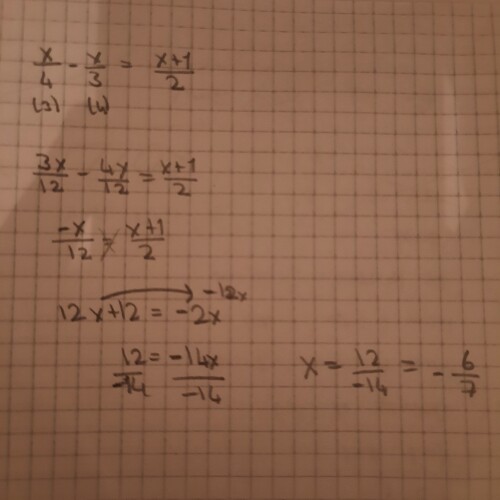 x/4 - x/3 = x+1/2
(3) (4)
3x/12 - 4x/12 = x+1/2
-x/12 = x+1/2
-12x
12x+12 = -2x
12/-14 = -14x/-14
x = 12/-14 = - 6/7